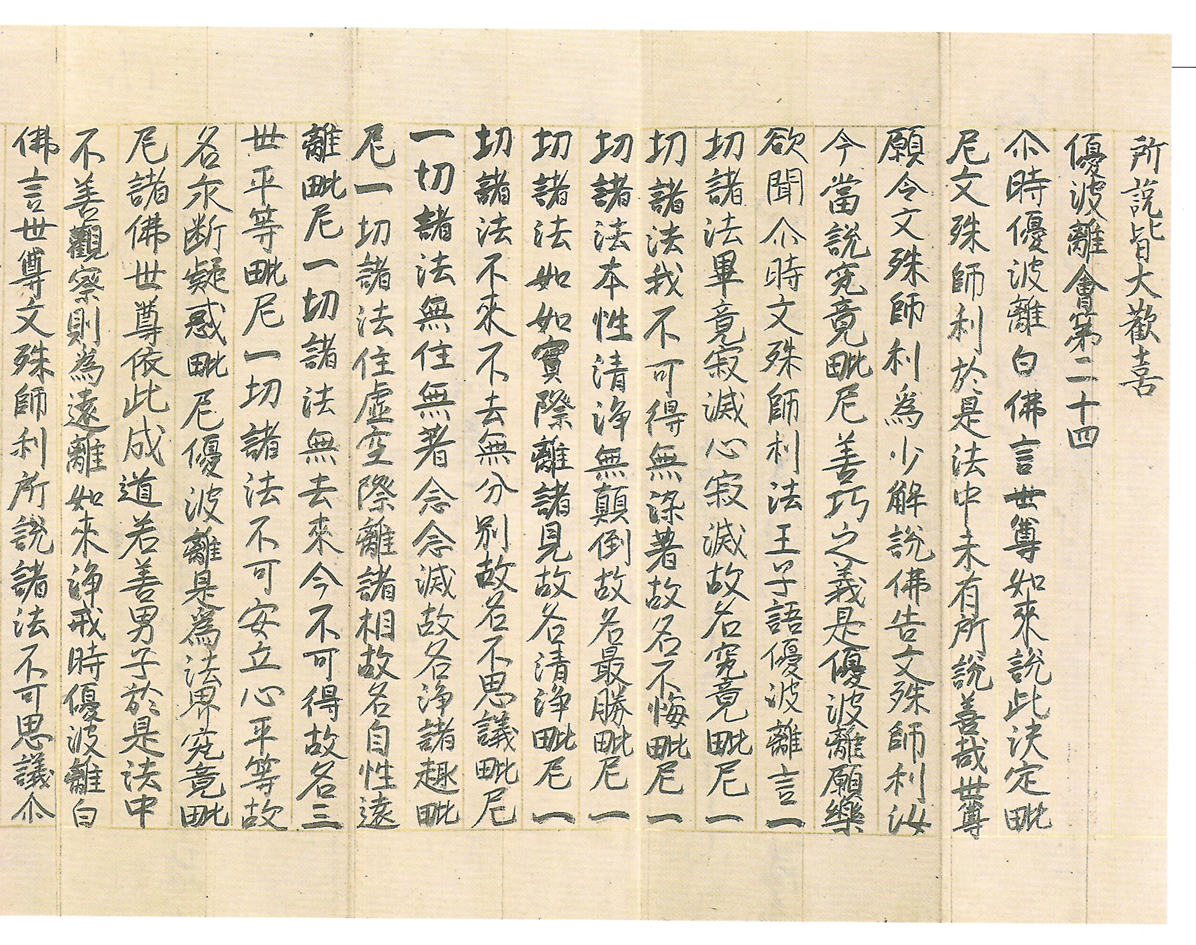 所說皆大歡喜
優波離會第二十四
尒時優波離白佛言世尊如來說此決定毗
尼文殊師利於是法中未有所說善哉世尊
願令文殊師利為少解說佛告文殊師利汝
今當說究竟毗尼善巧之義是優波離願樂
欲聞尒時文殊師利法王子語優波離言一
切諸法畢竟寂滅心寂滅故名究竟毗尼一
切諸法我不可得無染著故名不悔毗尼一
切諸法本性清淨無顛倒故名最勝毗尼一
切諸法如如實際離諸見故名清淨毗尼一
切諸法不來不去無分別故名不思議毗尼
一切諸法無住無著念念滅故名淨諸趣毗
尼一切諸法住虛空際離諸相故名自性遠
離毗尼一切諸法無去來今不可得故名三
世平等毗尼一切諸法不可安立心平等故
名永断疑惑毗尼優波離是為法界究竟毗
尼諸佛世尊依此成道若善男子於是法中
不善觀察則為遠離如來淨戒時優波離白
佛言世尊文殊師利所說諸法不可思議尒